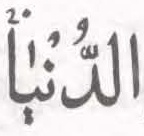 الدُّنْيٰاؗ